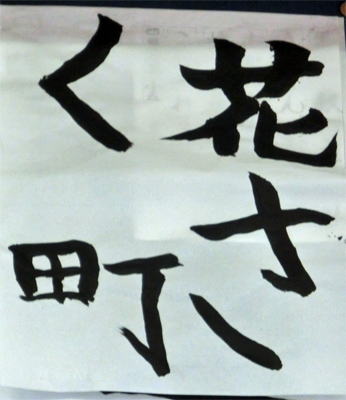 花さ
く町